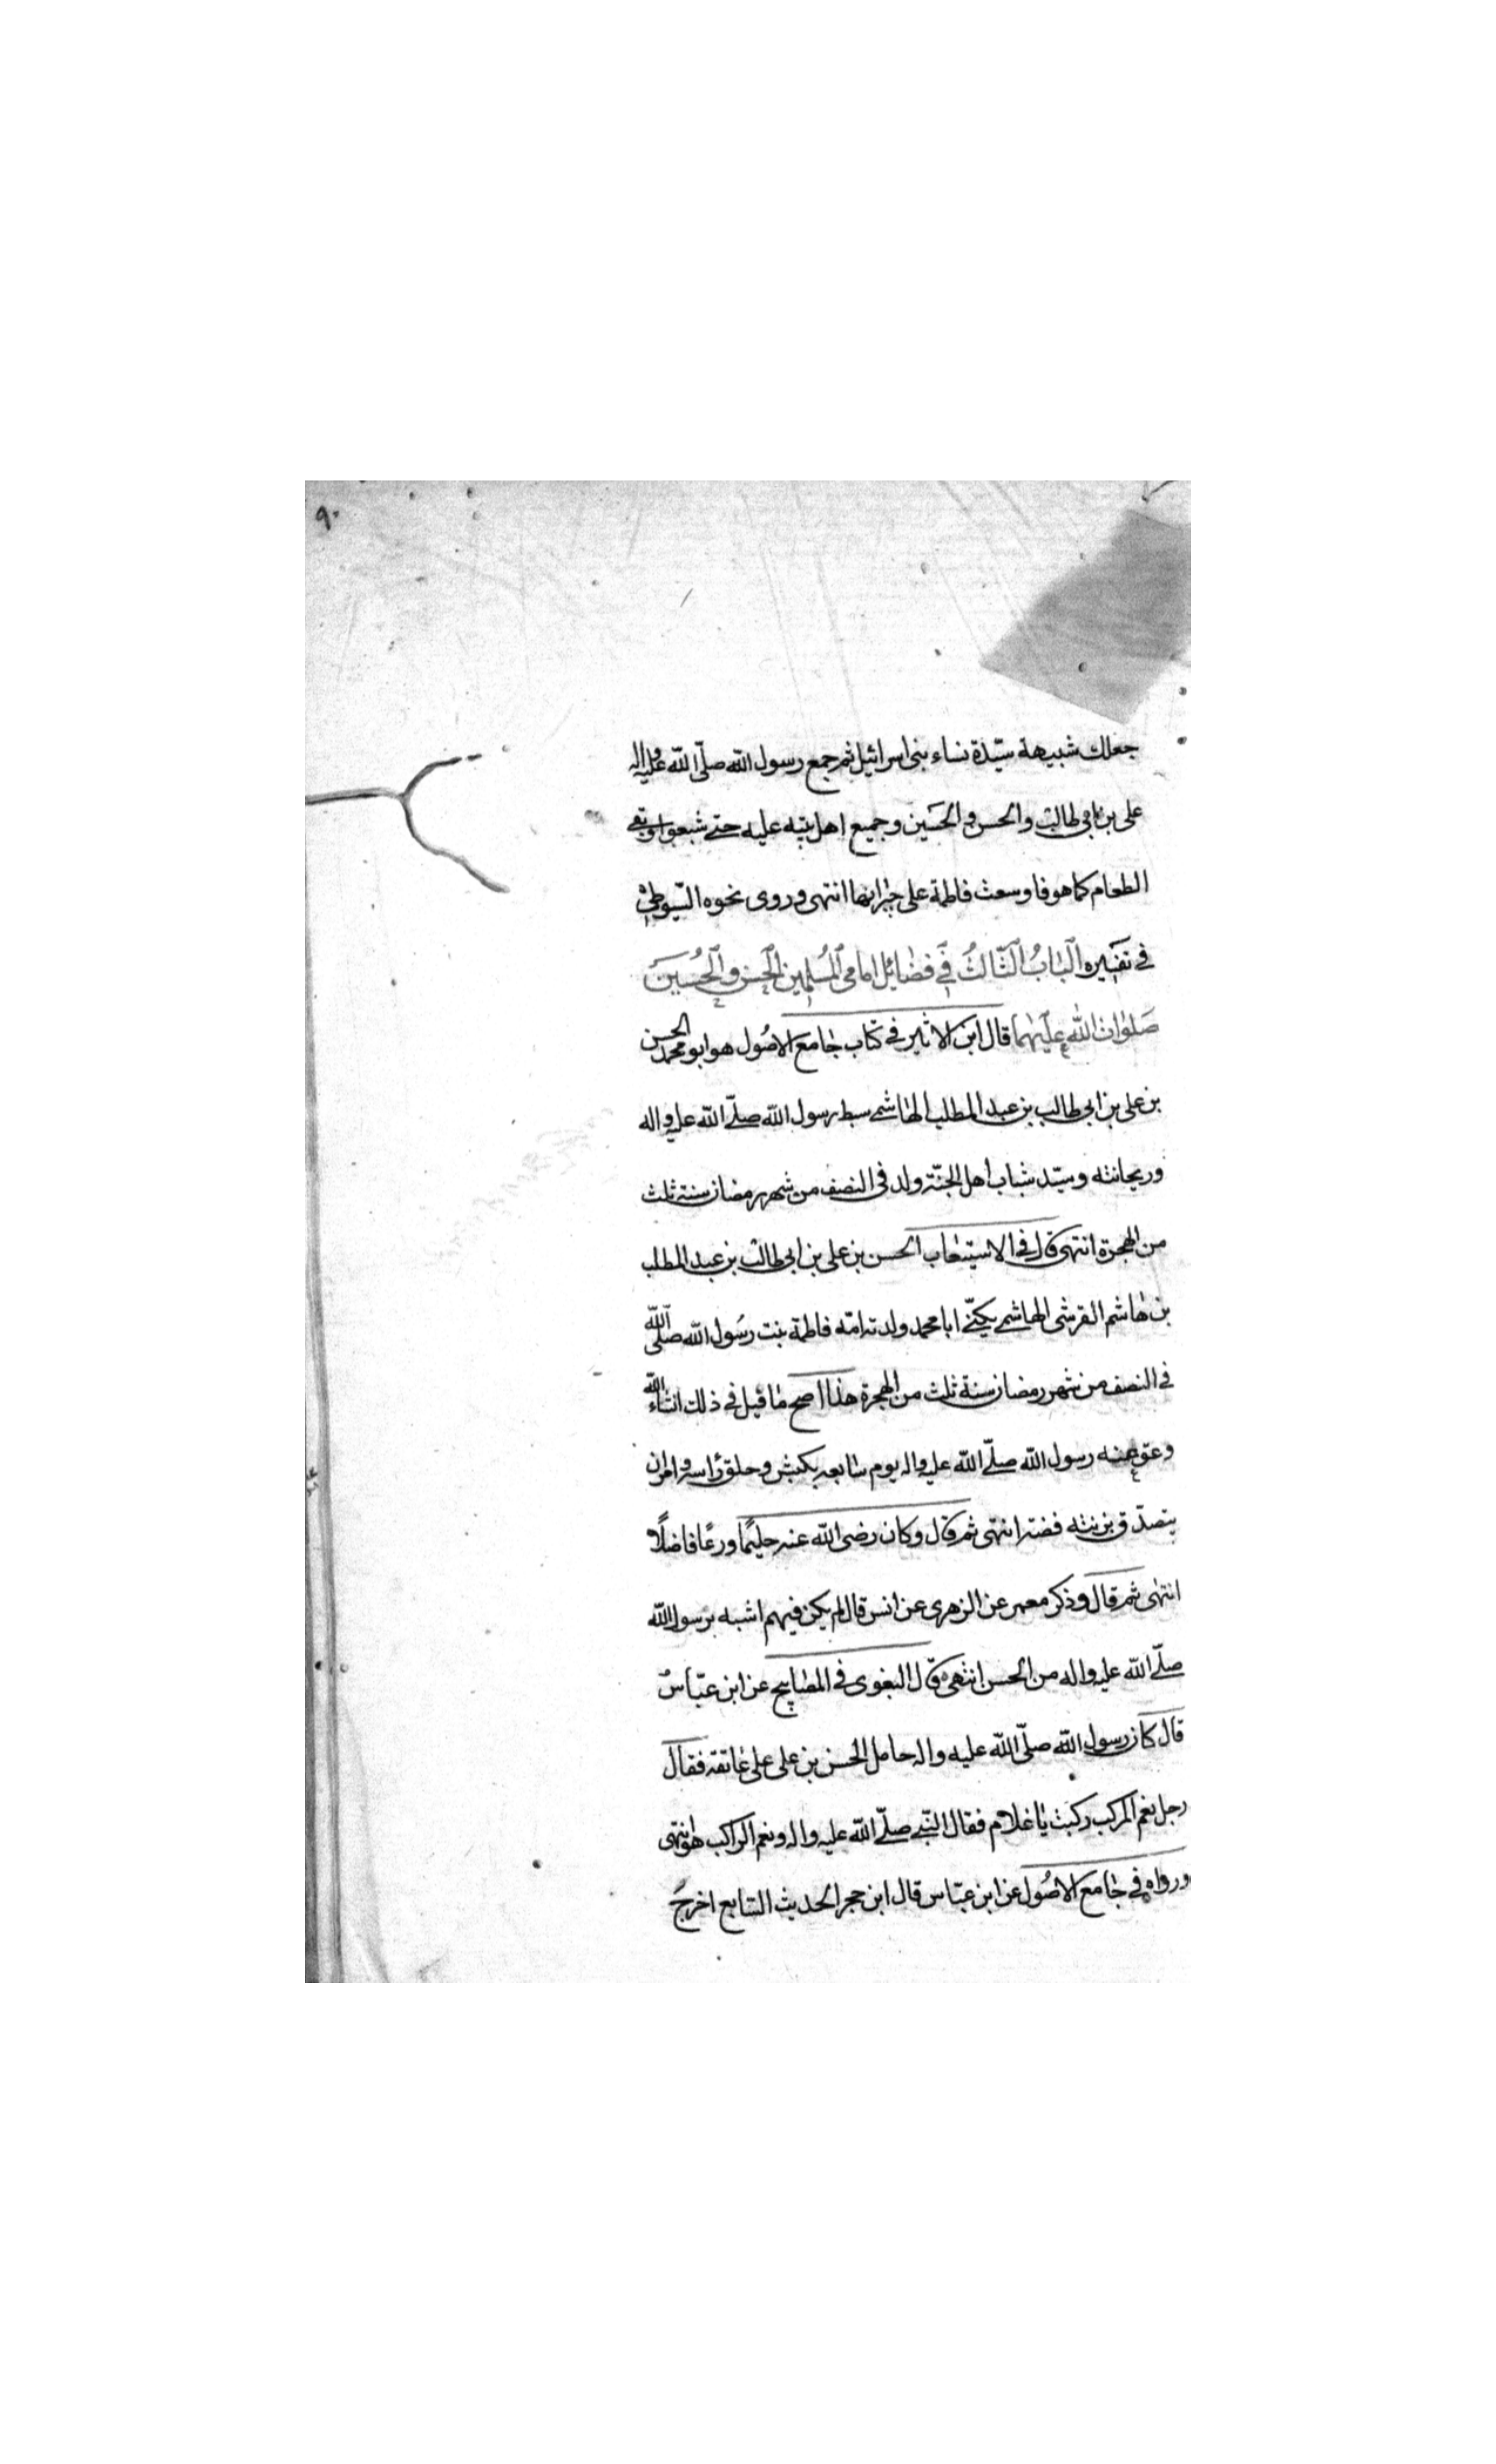 ٩٠
جعلك شبيهة سيّدة نساء بنى اسرائيل ثم جمع رسول الله صلّى الله عليه واله
على بن ابى طالب والحسن والحسين وجميع اهل بيته عليه حتى شبعوا وبقى
الطعام كما هو فاوسعت فاطمة على جيرانها انتهى وروى نحوه السّيوطى
فى تفسيره الباب الثّالث فى فضايل امامى المسلمين الحسن والحسين
صلوات الله عليهما قال ابن الاثير فى كتاب جامع الاصول هو ابو محمد الحسن
بن على بن ابى طالب بن عبد المطلب الهاشمى سبط رسول الله صلّى الله عليه واله
وريحانته وسيّد شباب اهل الجنّة ولد فى النصف من شهر رمضان سنة ثلث
من الهجرة انتهى قال فى الاستيعاب الحسن بن على بن ابى طالب بن عبد المطلب
بن هاشم القرشى الهاشمى يكنّى ابا محمد ولدته امّه فاطمة بنت رسول الله صلّى الله
فى النصف من شهر رمضان سنة ثلث من الهجرة هذا اصح ما قيل فى ذلك انشاء الله
وعق عنه رسول الله صلّى الله عليه واله يوم سابعه بكبش وحلق رأسه وامر ان
يتصدّق بزنته فضة انتهى ثم قال وكان رضى الله عنه حليمًا ورعًا فاضلًا
انتهى ثم قال وذكر معمر عن الزهرى عن انس قال لم يكن فيهم اشبه برسول الله
صلّى الله عليه واله من الحسن انتهى وقال البغوى فى المصابيح عن ابن عبّاس
قال كان رسول الله صلّى الله عليه واله حامل الحسن بن على على عاتقه فقال
رجل نعم المركب ركبت يا غلام فقال النّبى صلّى الله عليه واله ونعم الراكب هو انتهى
ورواه فى جامع الاصول عن ابن عبّاس قال ابن حجر الحديث السّابع اخرج